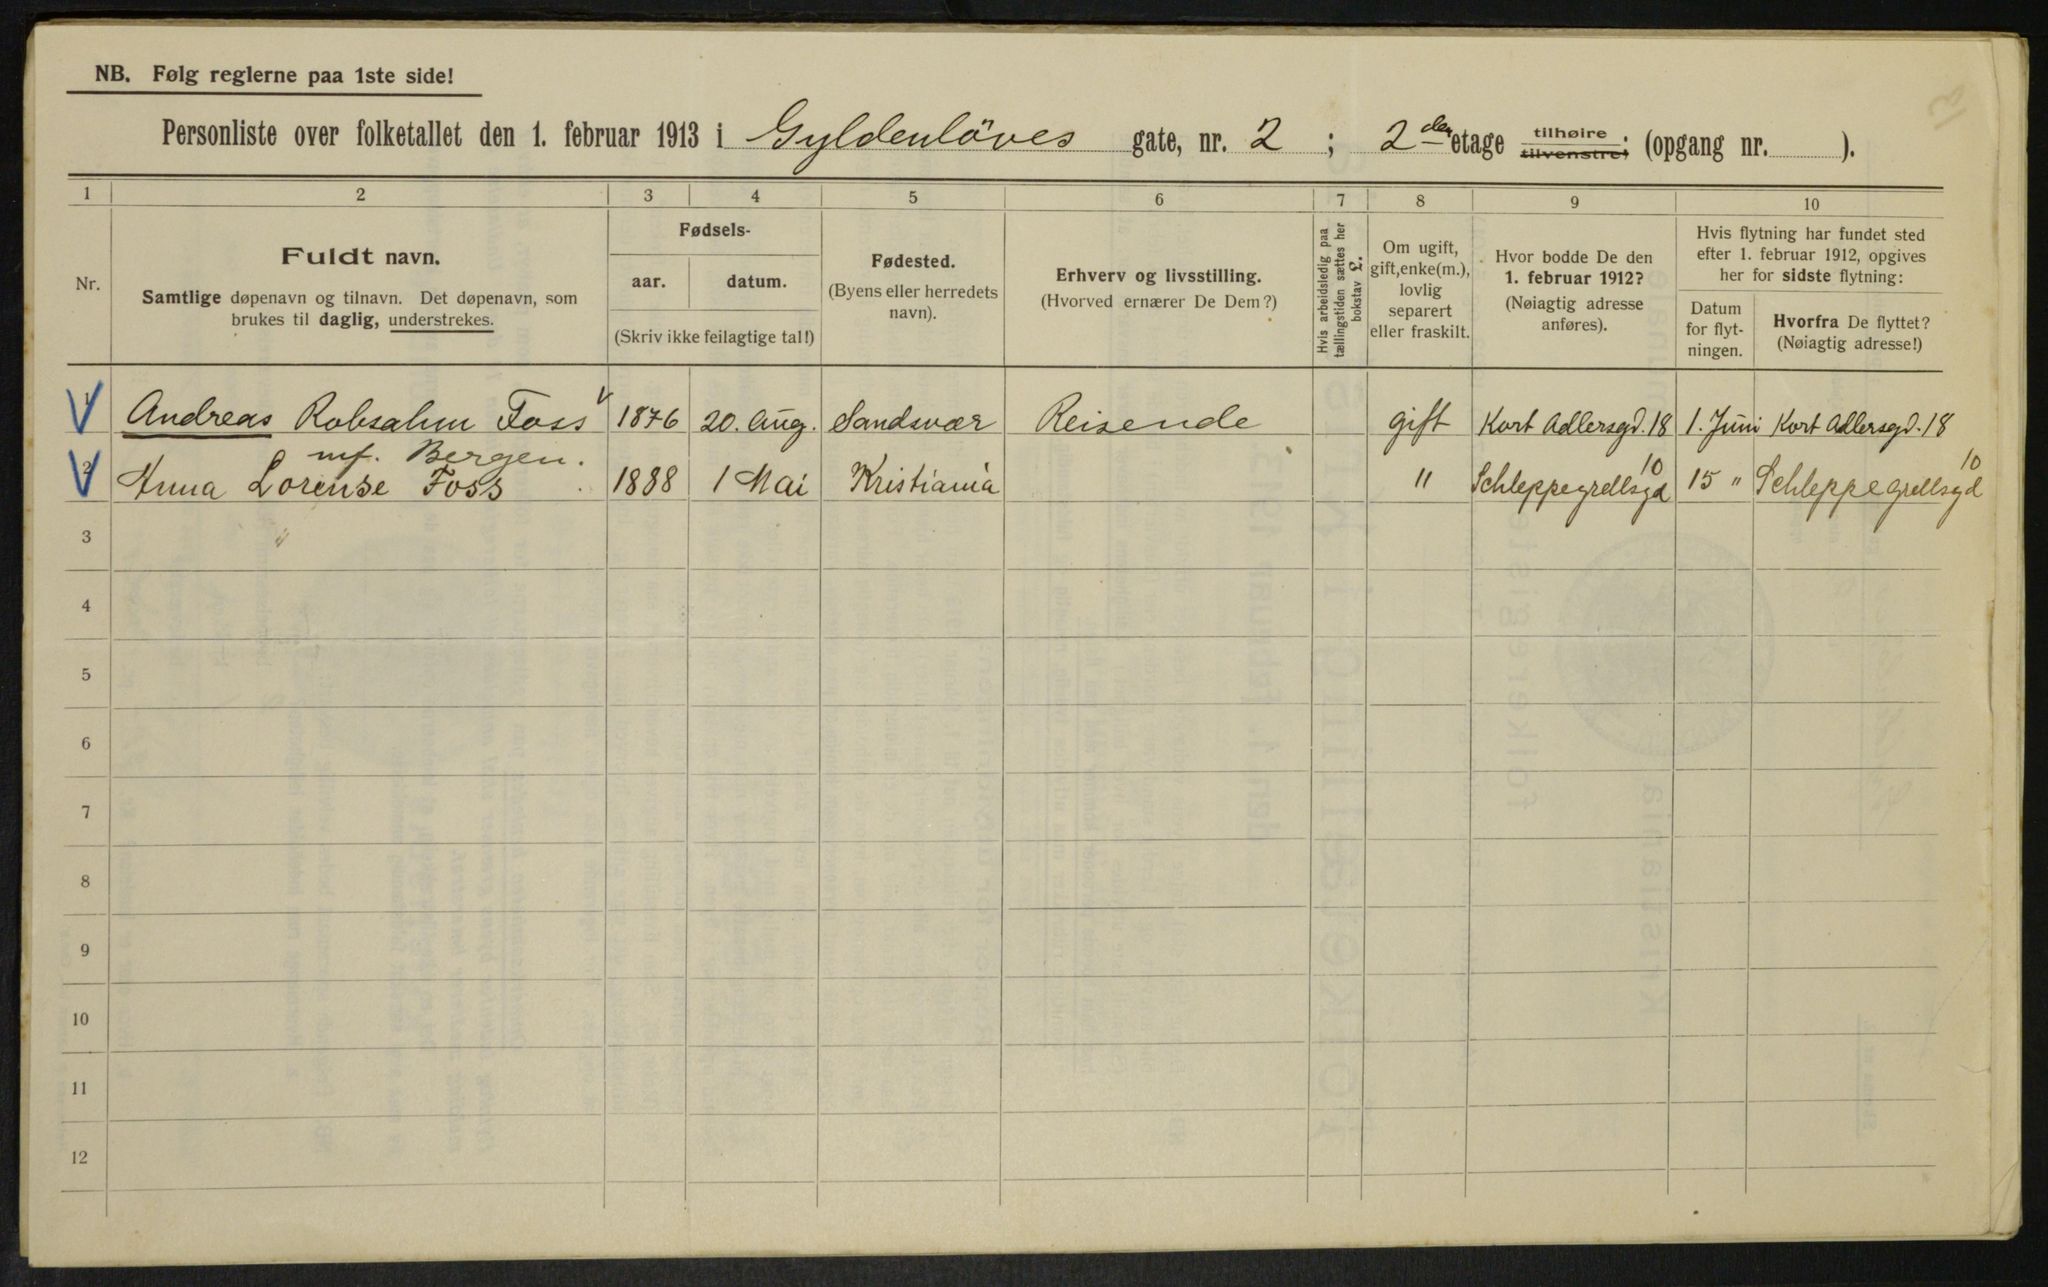 NB. Følg reglerne paa 1ste side!
Personliste over folketallet den 1. februar 1913 i Gyldenlöves gate, nr. 2 ; 2den etage tilhøire tilvenstre; (opgang nr. ).
1 2 3 4 5 6 7 8 9 10
Nr.
Fuldt navn.
Samtlige døpenavn og tilnavn. Det døpenavn, som
brukes til daglig, understrekes.
Fødsels-
aar. datum.
(Skriv ikke feilagtige tal!)
Fødested.
(Byens eller herredets
navn).
Erhverv og livsstilling.
(Hvorved ernærer De Dem?)
Hvis arbeidsledig paa
tællingstiden sættes her
bokstav £.
Om ugift,
gift, enke(m.),
lovlig
separert
eller fraskilt.
Hvor bodde De den
1. februar 1912?
(Nøiagtig adresse
anføres).
Hvis flytning har fundet sted
efter 1. februar 1912, opgives
her for sidste flytning:
Datum
for flyt-
ningen.
Hvorfra De flyttet?
(Nøiagtig adresse!)
1 Andreas Robsahm Foss 1876 20. Aug. Sandsvær Reisende gift Kort Adlersgd. 18 1. Juni Kort Adlersgd. 18
mf. Bergen.
2 Anna Lorense Foss 1888 1 Mai Kristiania " Schleppegrellsgd 10 15 " Schleppegrellsgd 10
3 "
4
5
6
7
8
9
10
11
12